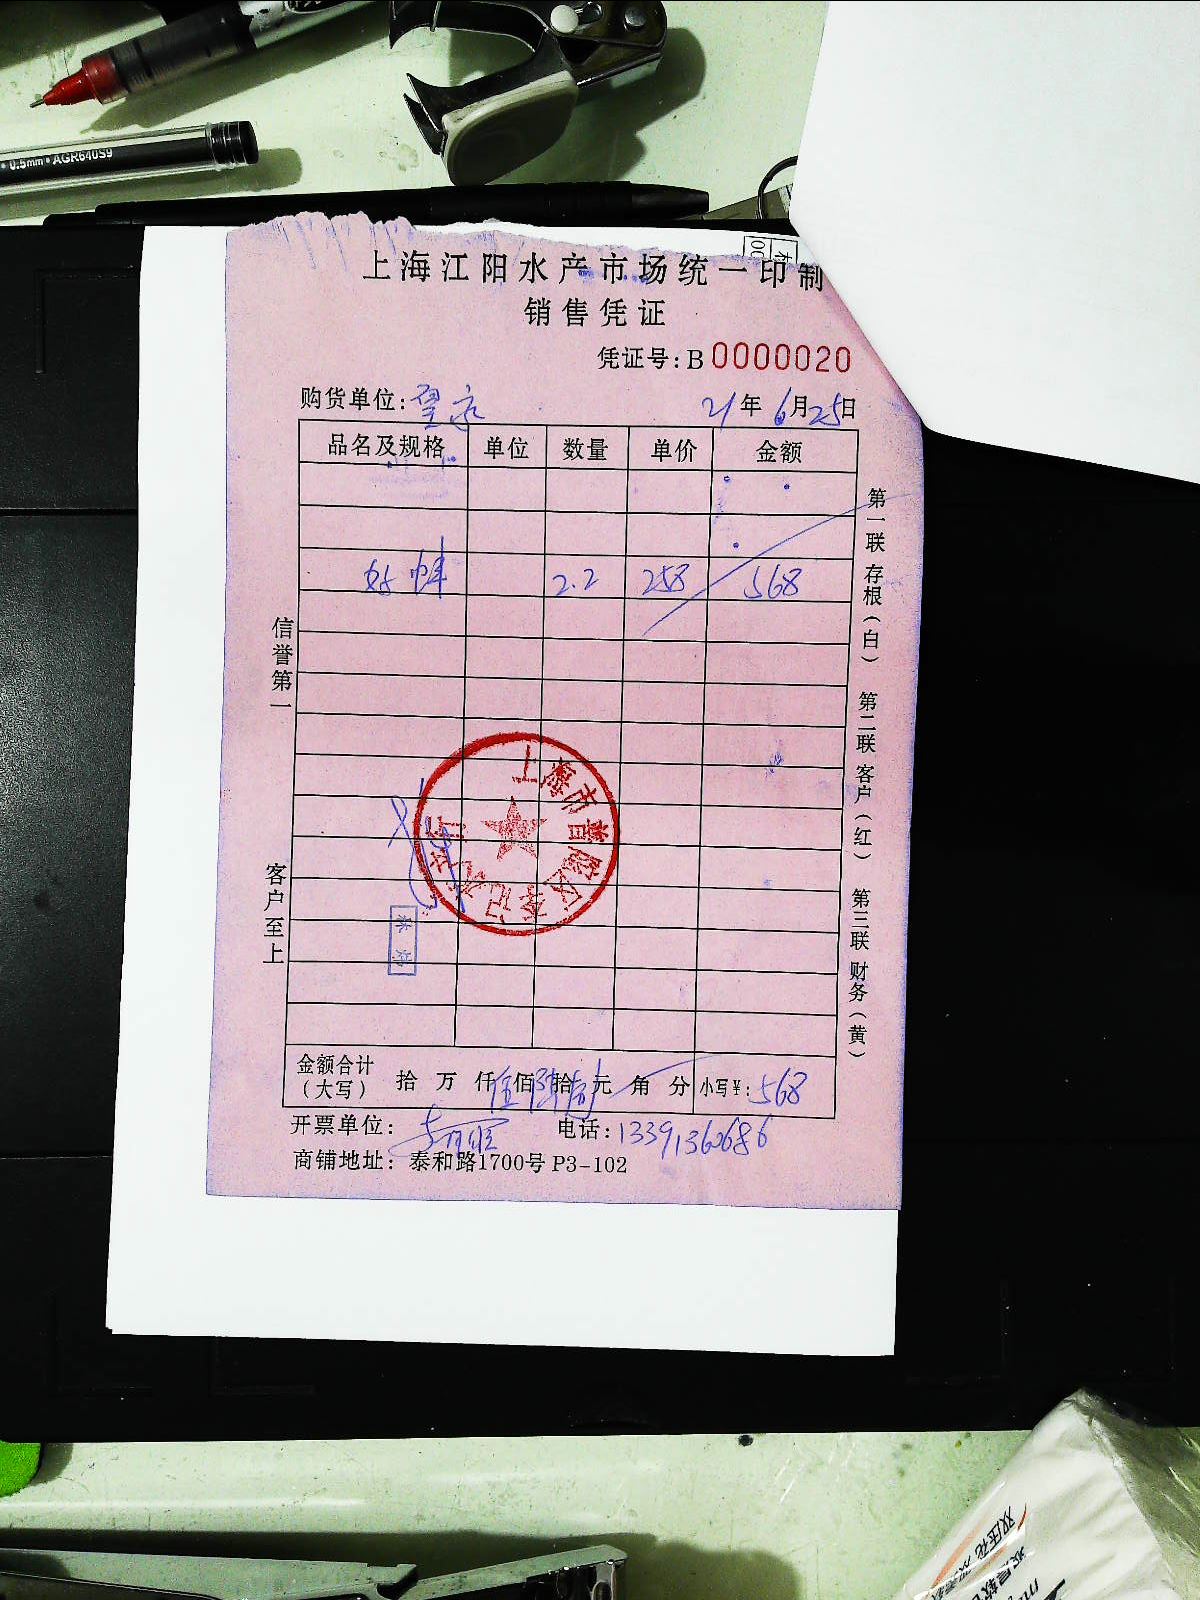 0.5mm•AGR640S9
上海江阳水产市场统一印制
销售凭证
凭证号:B 0000020
购货单位:望
21年 6月25日
品名及规格 单位 数量 单价 金额
2.2 258 568
信誉第一
客户至上
第一联 存根(白) 第二联 客户(红) 第三联 财务(黄)
上海市普陀区
金额合计
(大写) 拾 万 仟 伍 佰 陆 拾 捌 元 角 分 小写¥:568
开票单位:
电话:13391360686
商铺地址: 泰和路1700号 P3-102
双压花